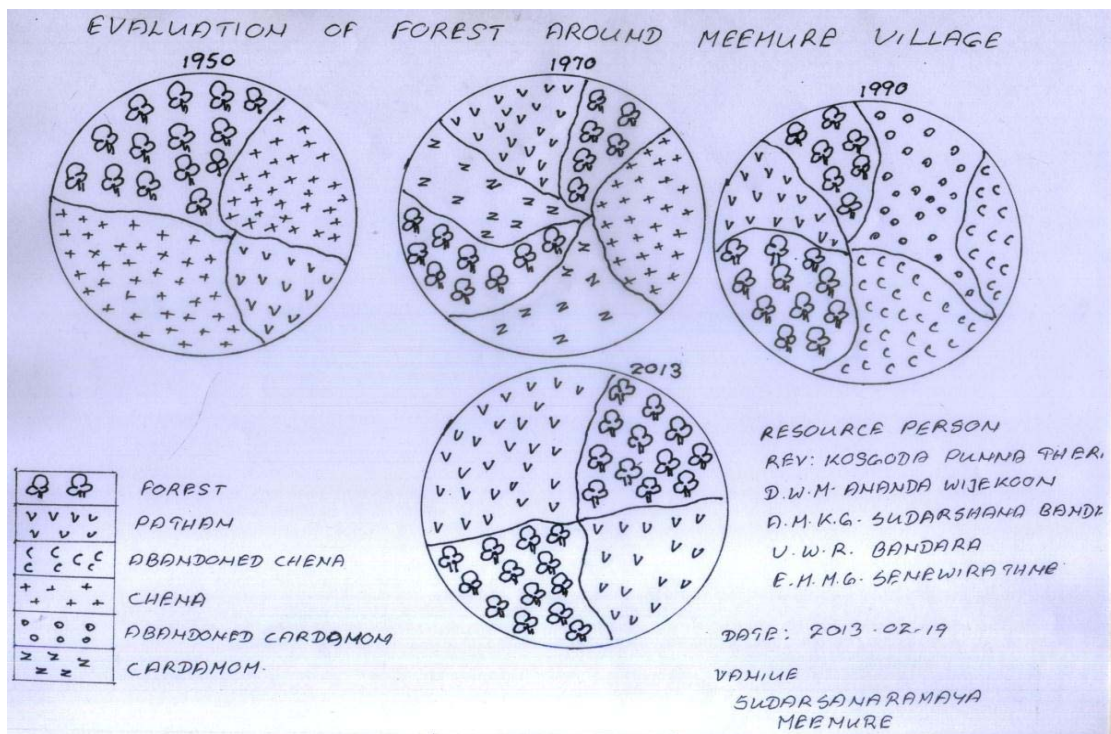 EVALUATION OF FOREST AROUND MEEMURE VILLAGE
1950
1970
1990
2013
FOREST
PATHAN
ABANDONED CHENA
CHENA
ABANDONED CARDAMOM
CARDAMOM.
RESOURCE PERSON
REV: KOSGODA PUNNA THER
D.W.M. ANANDA WIJEKOON
A.M.K.G. SUDARSHANA BANDA
U.W.R. BANDARA
E.M.M.G. SENEWIRATHNE
DATE: 2013.02.19
VANIUE
SUDARSANARAMAYA
MEEMURE